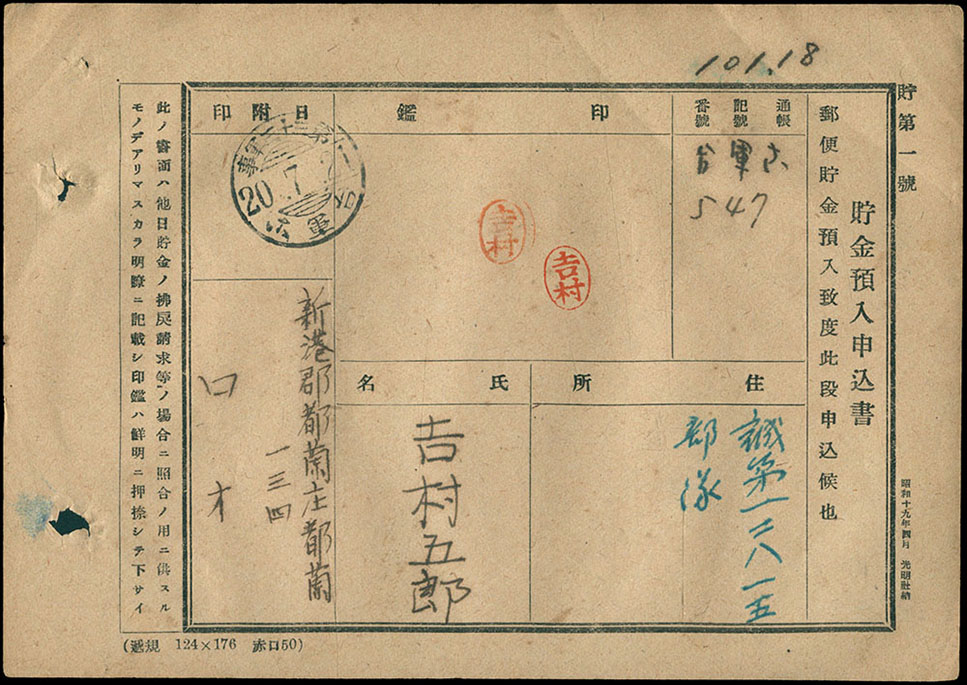 101.18
貯第一號
貯金預入申込書
郵便貯金預入致度此段申込候也
昭和十九年四月 光明社納
通帳
記號
番號
台軍
547
印鑑
吉村
吉村
日附印
20.7.
住所
誠第一二八一五
部隊
氏名
吉村五郎
新港郡都蘭庄都蘭
一三四
ロオ
此ノ書面ハ他日貯金ノ拂戾請求等ノ場合ニ照合ノ用ニ供スル
モノデアリマスカラ明瞭ニ記載シ印鑑ハ鮮明ニ押捺シテ下サイ
(遞規 124×176 赤口50)